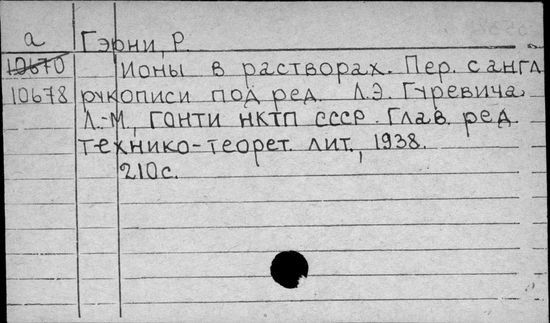 а Гэрни, Р.
10670 Ионы в растворах. Пер. с англ
10678 рукописи под ред. Л.Э. Гуревича.
Л.-М., ГОНТИ НКТП СССР. Глав. ред.
технико-теорет. лит., 1938.
210с.